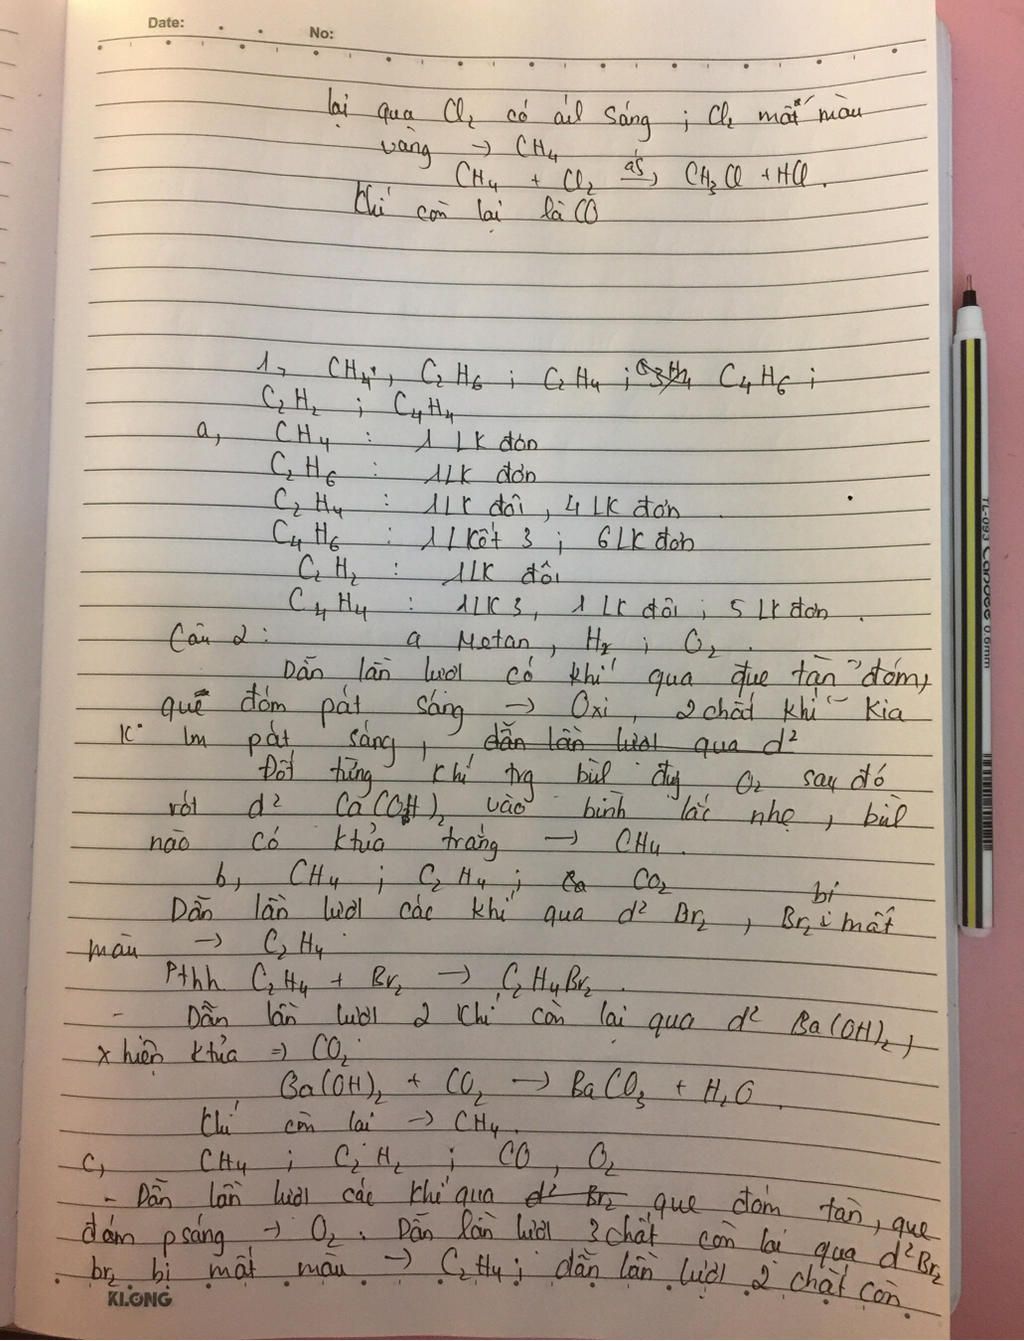 Date:
No:
lại qua Cl₂ có ás sáng ; Cl₂ mất màu
vàng → CH₄
CH₄ + Cl₂ —ás→ CH₃Cl + HCl.
Khí còn lại là CO
1, CH₄, C₂H₆ ; C₂H₄ ; C₄H₆ ;
C₂H₂ ; C₄H₄
a, CH₄ : 1 LK đơn
C₂H₆ : 1LK đơn
C₂H₄ : 1LK đôi, 4 LK đơn
C₄H₆ : 1 LKết 3 ; 6 LK đơn
C₂H₂ : 1LK đôi
C₄H₄ : 1LK 3, 1 LK đôi ; 5 LK đơn.
Câu 2: a Metan, H₂ ; O₂.
Dẫn lần lượt có khí qua que tàn đóm,
quê đóm pát sáng → Oxi, 2 chất khí kia
K° lm pát sáng, dẫn lần lượt qua d²
Đốt từng khí trg bìl đựg O₂ sau đó
rót d² Ca(OH)₂ vào bình lắc nhẹ, bìl
nào có ktủa trắng → CH₄.
b, CH₄ ; C₂H₄ ; CO₂
Dẫn lần lượt các khí qua d² Br₂, Br₂ bị mất
màu → C₂H₄
Pthh C₂H₄ + Br₂ → C₂H₄Br₂.
- Dẫn lần lượt 2 khí còn lại qua d² Ba(OH)₂,
x hiện ktủa ⇒ CO₂
Ba(OH)₂ + CO₂ → BaCO₃ + H₂O.
Khí còn lại → CH₄.
c, CH₄ ; C₂H₂ ; CO, O₂
- Dẫn lần lượt các khí qua d² Br₂ que đóm tàn, que
đóm psáng → O₂. Dẫn lần lượt 3 chất còn lại qua d² Br₂
br₂ bị mất màu → C₂H₄ ; dẫn lần lượt 2 chất còn
KLONG
TL-093
0.6mm